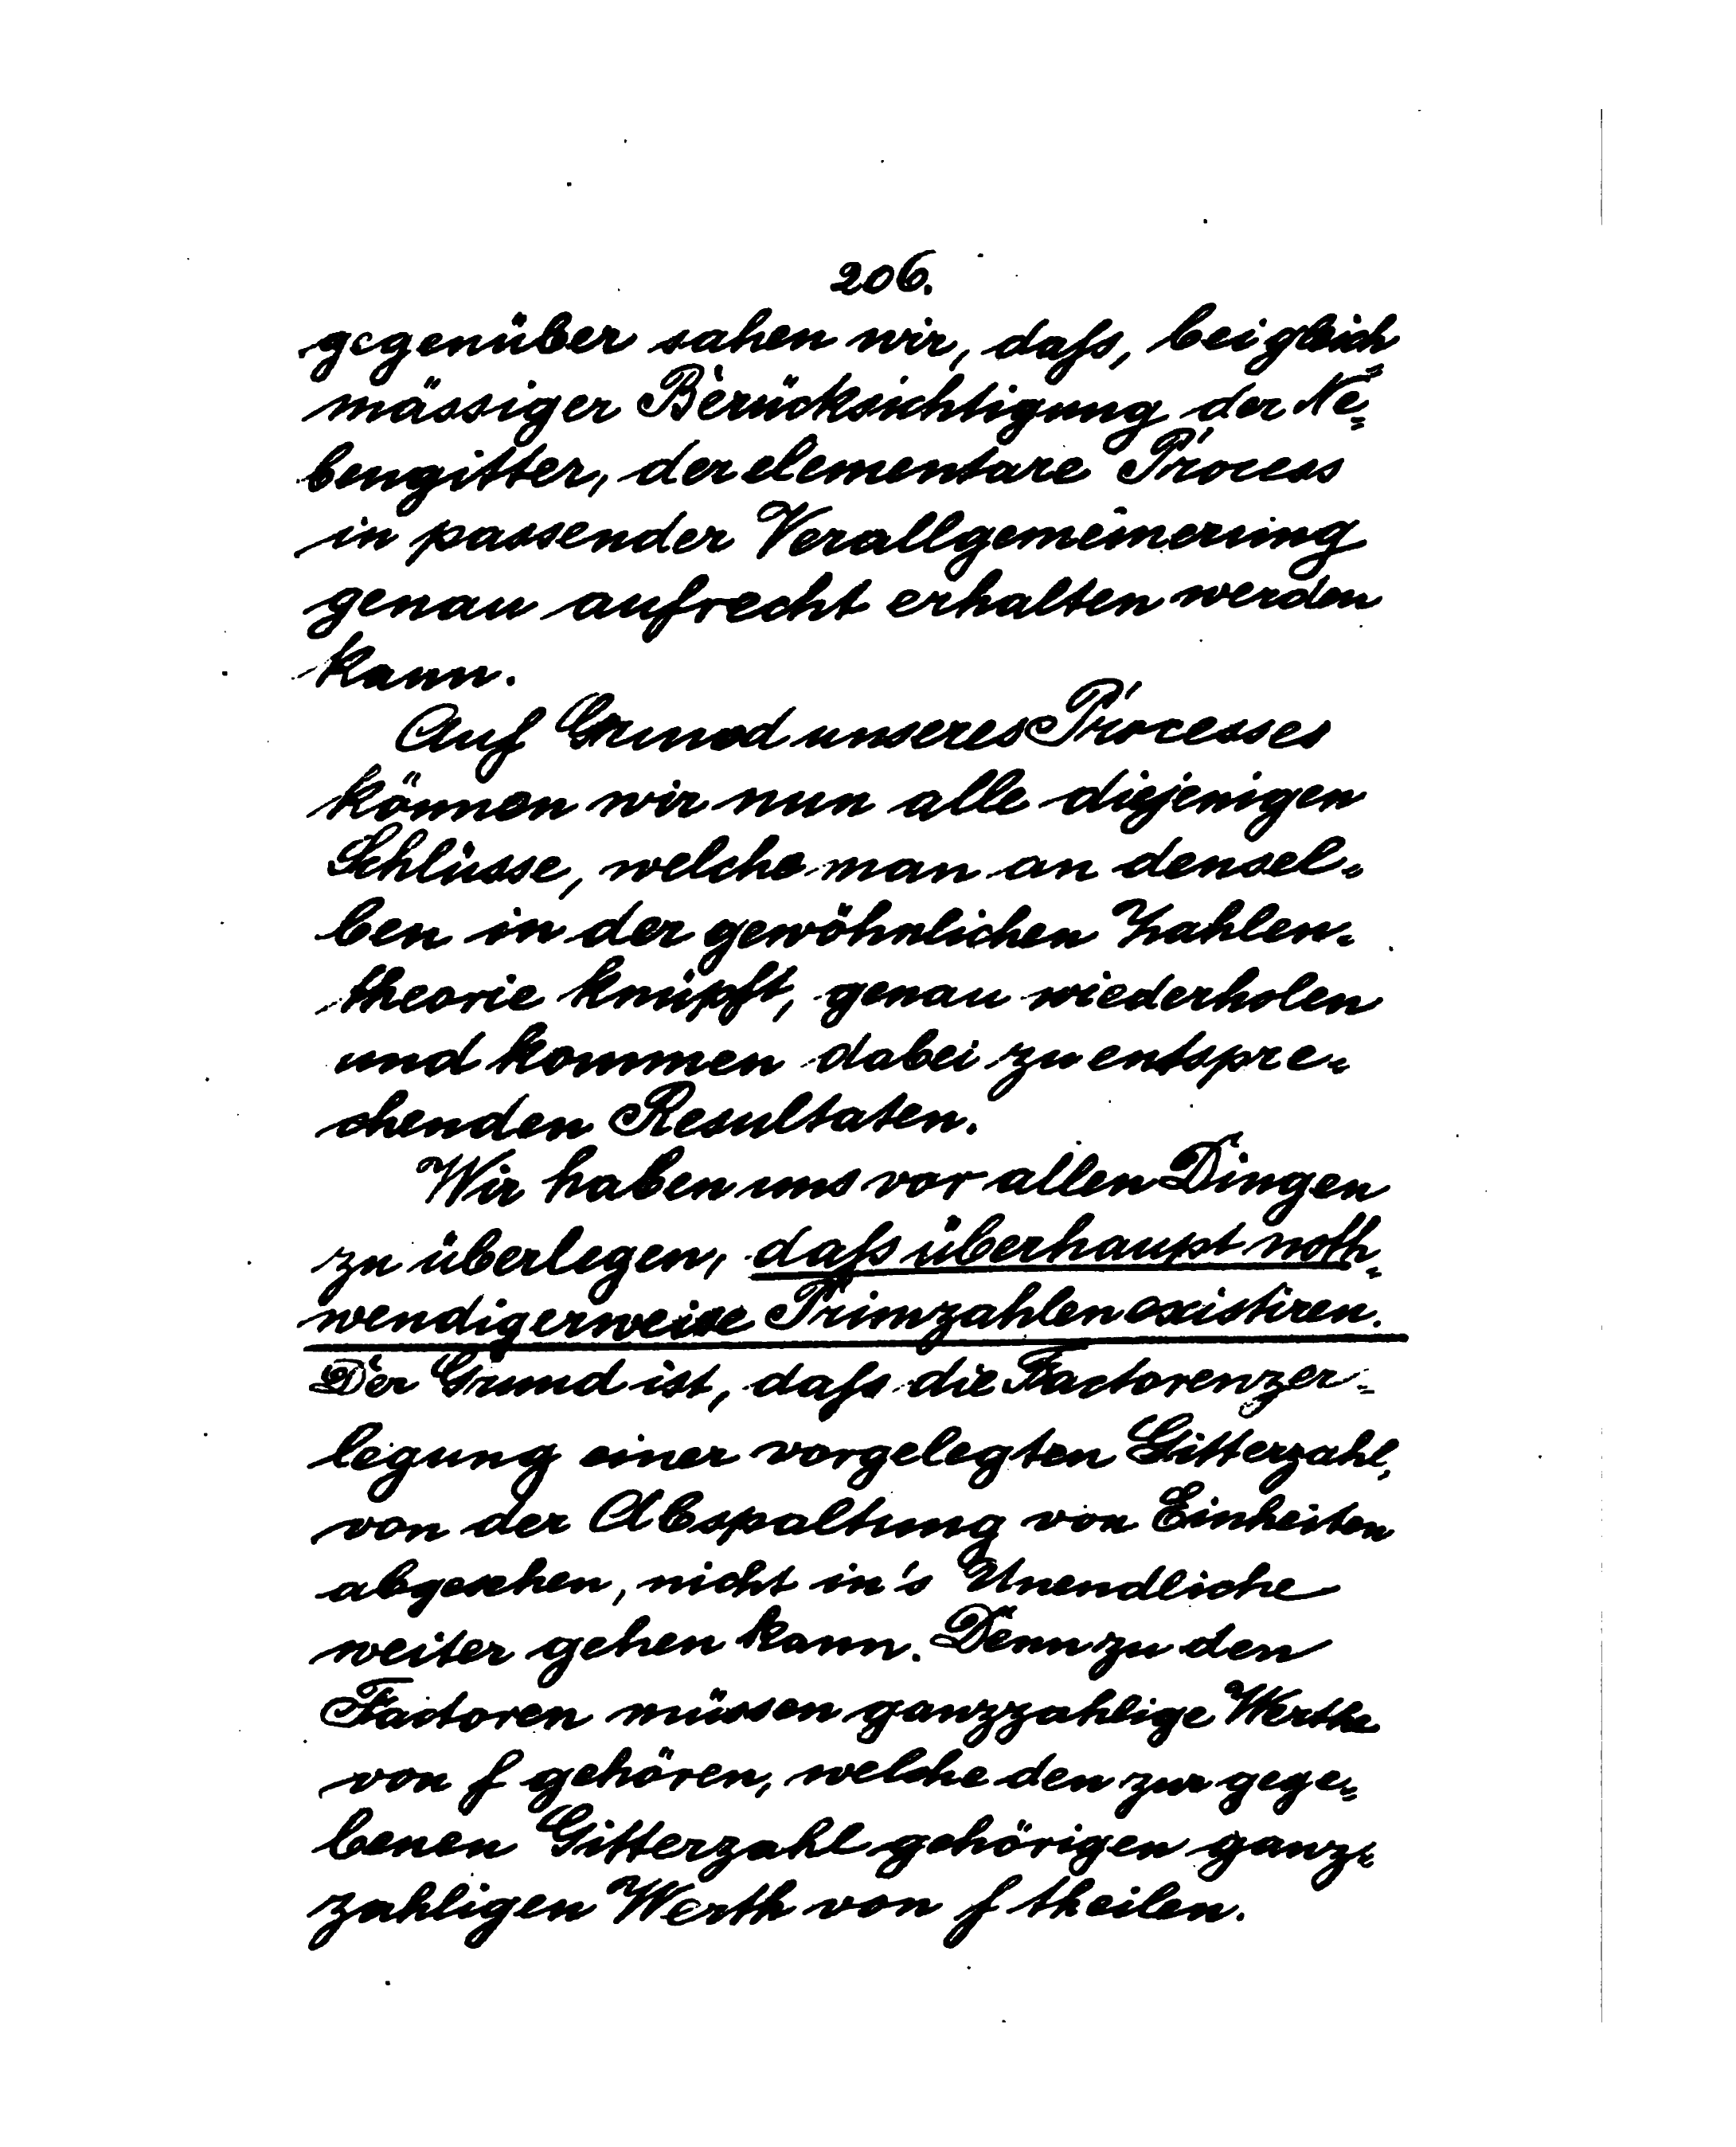 206.
gegenüber sahen wir, daß, bei gleich=
mässiger Berücksichtigung der Ne=
bengitter, der elementare Process
in passender Verallgemeinerung
genau aufrecht erhalten werden
kann.
Auf Grund unseres Processes
können wir nun alle diejenigen
Schlüsse, welche man an densel=
ben in der gewöhnlichen Zahlen=
theorie knüpft, genau wiederholen
und kommen dabei zu entspre=
chenden Resultaten.
Wir haben uns vor allen Dingen
zu überlegen, daß überhaupt noth=
wendigerweise Primzahlen existiren.
Der Grund ist, daß die Factorenzer=
legung einer vorgelegten Gitterzahl,
von der Abspaltung von Einheiten
abgesehen, nicht in's Unendliche
weiter gehen kann. Denn zu den
Factoren müssen ganzzahlige Werthe
von f gehören, welche den zur gege=
benen Gitterzahl gehörigen ganz=
zahligen Werth von f theilen.